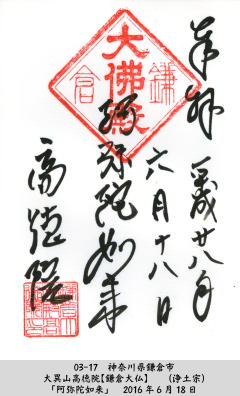 奉拝 平成廿八年
六月十八日
鎌倉
大佛殿
阿弥陀如来
高徳院
03-17 神奈川県鎌倉市
大異山高徳院【鎌倉大仏】 (浄土宗)
「阿弥陀如来」 2016年6月18日